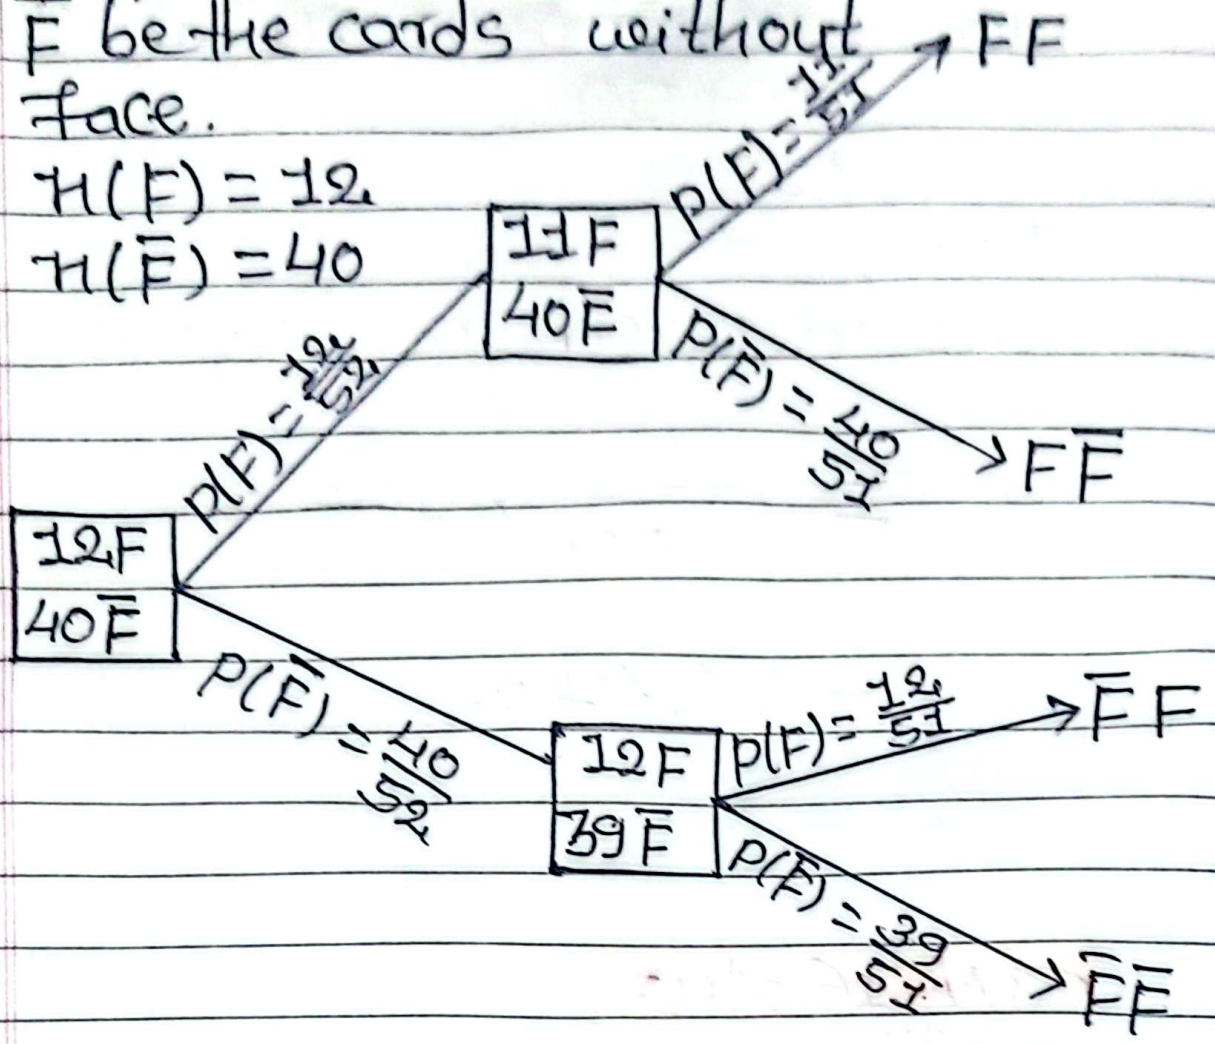 F̅ be the cards without
face.
n(F) = 12
n(F̅) = 40
12F
40F̅
P(F) = 12/52
P(F̅) = 40/52
11F
40F̅
P(F) = 11/51
FF
P(F̅) = 40/51
FF̅
12F
39F̅
P(F) = 12/51
F̅F
P(F̅) = 39/51
F̅F̅